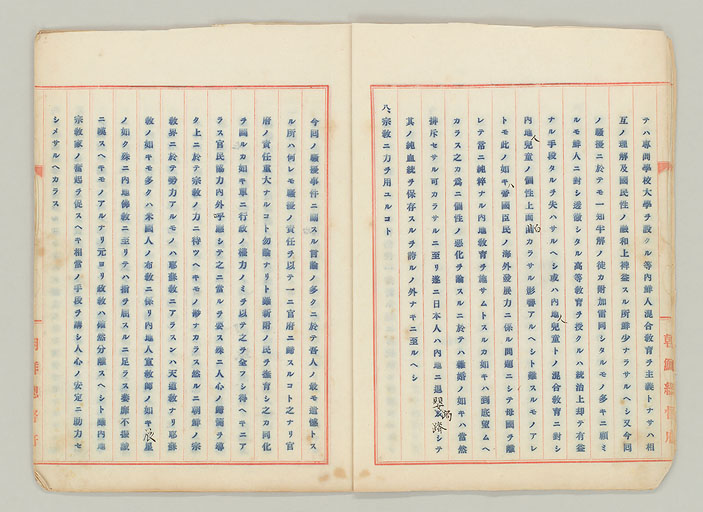 テハ專門學校大學ヲ設クル等內鮮人混合敎育ヲ主義トナサハ相
互ノ理解及國民性ノ融和上裨益スル所尠少ナラサルヘシ又今回
ノ騷擾ニ於テモ一知半解ノ徒カ附加雷同シタルモノ多キニ顧ミ
ルモ鮮人ニ對シ透徹シタル高等敎育ヲ授クルハ統治上却テ有益
ナル手段タルヲ失ハサルヘシ或ハ內地人兒童トノ混合敎育ニ對シ
內地人兒童ノ個性上面白カラサル影響アルヘシト雖スルモノアレ
トモ此ノ如キハ帝國臣民ノ海外發展力ニ係ル問題ニシテ母國ヲ離
レテ常ニ純粹ナル內地敎育ヲ施サムトスルカ如キハ到底望ムヘ
カラス之カ爲ニ個性ノ惡化ヲ論スルニ於テハ雜婚ノ如キハ當然
排斥セサル可カラサルニ至リ遂ニ日本人ハ內地ニ退嬰跼蹐シテ
其ノ純血統ヲ保存スルヲ誇ルノ外ナキニ至ルヘシ
八、宗敎ニ力ヲ用ユルコト
今回ノ騷擾事件ニ關スル言論ノ多クニ於テ吾人ノ最モ遺憾トス
ル所ハ何レモ騷擾ノ責任ヲ以テ一ニ官府ニ歸スルコト之ナリ官
府ノ責任重大ナルコト勿論ナリト雖新附ノ民ヲ撫育シ之カ同化
ヲ圖ルカ如キ單ニ行政ノ權力ノミヲ以テ之ヲ全フシ得ヘキニア
ラス官民協力內外呼應シテ之ニ當ルヲ要ス殊ニ人心ノ歸嚮ヲ尋
タ上ニ於テ宗敎ノ力ニ待ツヘキモノ尠ナカラス然ルニ朝鮮ノ宗
敎界ニ於テ勢力アルモノハ耶蘇敎ニアラスンハ天道敎ナリ耶蘇
敎ノ如キモ多クハ米國人ノ布敎ニ係リ內地人宣敎師ノ如キ辰星
ノ如ク殊ニ內地佛敎ニ至リテハ指ヲ屈スルニ足ラス萎靡不振誠
ニ嘆スヘキモノアルナリ元ヨリ政敎ハ儼然分離スヘシト雖內地
宗敎家ノ奮起ヲ促スヘキ相當ノ手段ヲ講シ人心ノ安定ニ助力セ
シメサルヘカラス
朝鮮總督府
朝鮮總督府